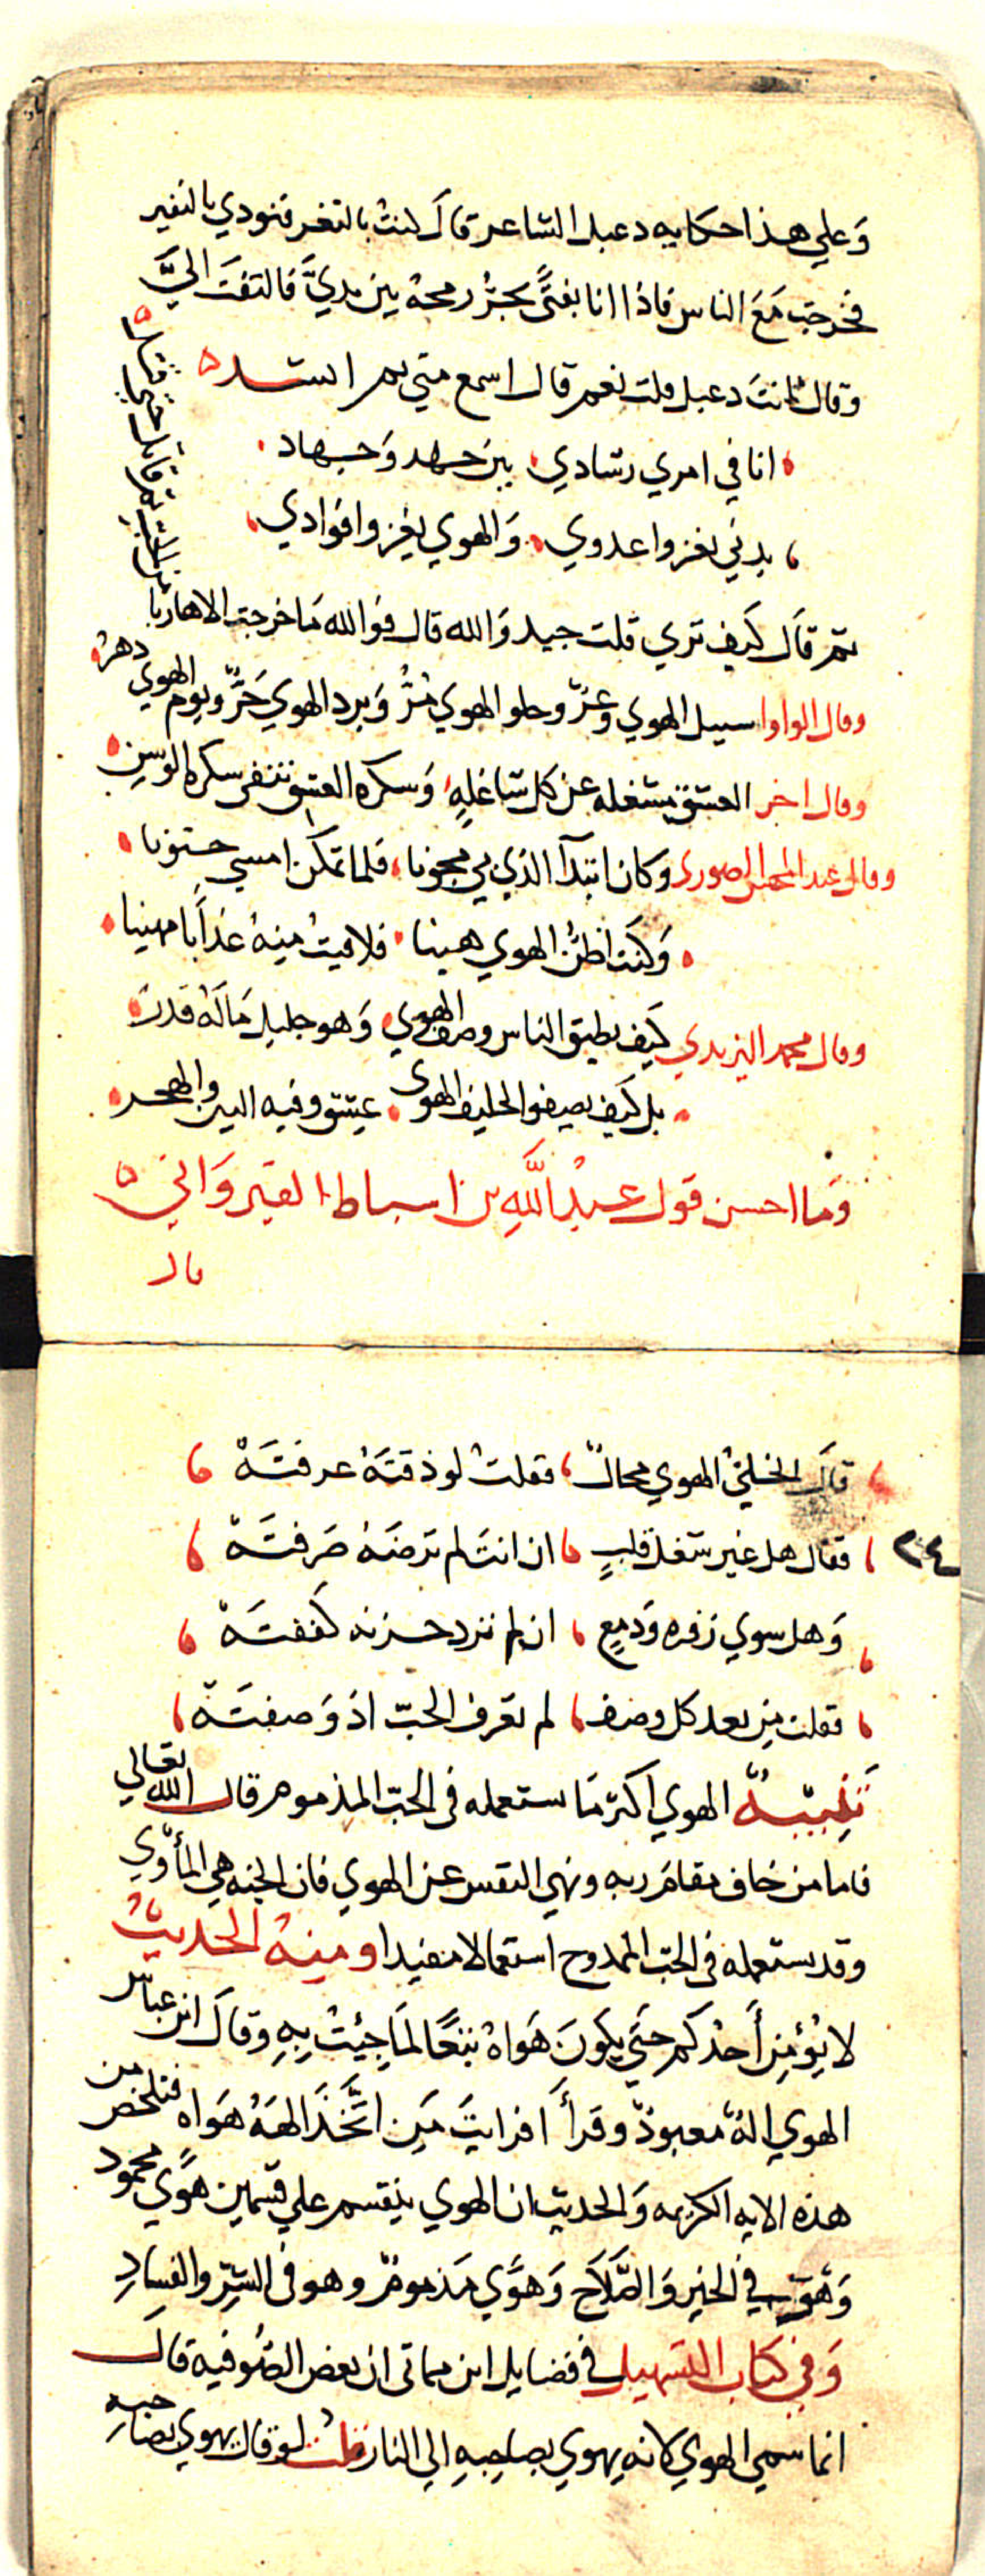 وَعلي هذا حكايه دعبل الشاعر قال كنتُ بالثغر فنودي بالنفير
فخرجت مَعَ الناس فاذا انا بفتًى يجرُّ رمحهُ بين يديَّ فالتفتَ اليَّ
وقال ءانتَ دعبل قلت نعم قال اسمع مني ثم انشد
انا في امري رشادي بين جهد وَجهاد
بدني يغزوا عدوي وَالهوي يغزوا فوادي
ثم قَال كيف تري قلت جيد وَالله قال فوَالله مَا خرجت الا هاربا
من الحب ثم قاتل حتي قتل
وقال الواوا سبيل الهوي وعرٌ وحلو الهوي مُرُّ وَبرد الهوي حَرٌّ ويوم الهوي دهرُ
وقال اخر العشق يشغله عن كل شاغلهٍ وَسكره العشق تنفي سكره الوسنِ
وقال عبد المحسن الصوري وكان ابتدآ الذي بي مجونا فلما تمكن امسي جنونا
وَكنت اظنُّ الهوي هينا فلاقيتُ منهُ عذاَبا مهينا
وقال محمد اليزيدي كيف يطيق الناس وصف الهوي وَهو جليل مَا لَهُ قدرُ
بل كيف يصفوا لحليف الهوي عيش وفيه البين والهجر
وَما احسن قول عبد اللَّهِ بن اسباط القيروَاني
قال
قالَ الخليُّ الهوي محالٌ فقلتُ لو ذقتَهُ عرفتَهْ
٢٤
فقال هل غير شغل قلبٍ ان انتَ لم ترضَهُ صَرفتَهْ
وَهل سوي زفره وَدمعٍ ان لم ترد حزنه كففتَهْ
فقلت مِن بعد كل وصف لم تعرف الحبّ اذ وَصفتَهْ
تَنبيهٌ الهوي اكثر مَا يستعمله في الحبّ المذموم قال الله تعالي
فاما من خاف مقامَ ربه ونهي النفس عن الهوي فان الجنه هي المأوي
وقد يستعمله في الحب الممدوح استعمالا مقيدا ومنهُ الحديثُ
لا يُؤمن أَحدكم حتي يكونَ هَواهُ تبعًا لمَا جِيئتُ بِهِ وقَالَ ابن عباس
الهوي الهٌ معبودٌ وقرأَ افرايتَ مَنِ اتَّخَذَ الههُ هَوَاه فتلخص من
هذه الايه الكريمه وَالحديث ان الهوي ينقسم علي قسمين هوًي محمود
وَهوَ في الخير وَالصَّلَاحِ وَهوًي مَذمومٌ وهو في الشرّ والفسادِ
وَفي كتاب التسهيل في فضايل ابن مماتي ان بعض الصُوفيه قال
انما سمي الهوي لانه يهوي بصاحِبِهِ الي النار قلتُ لو قال يهوي بصاحبه